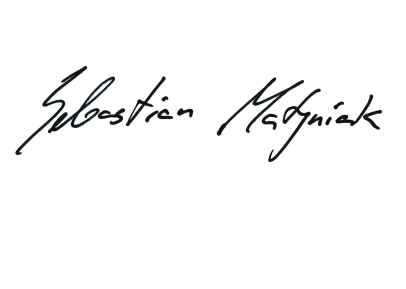 Sebastian Matyniak